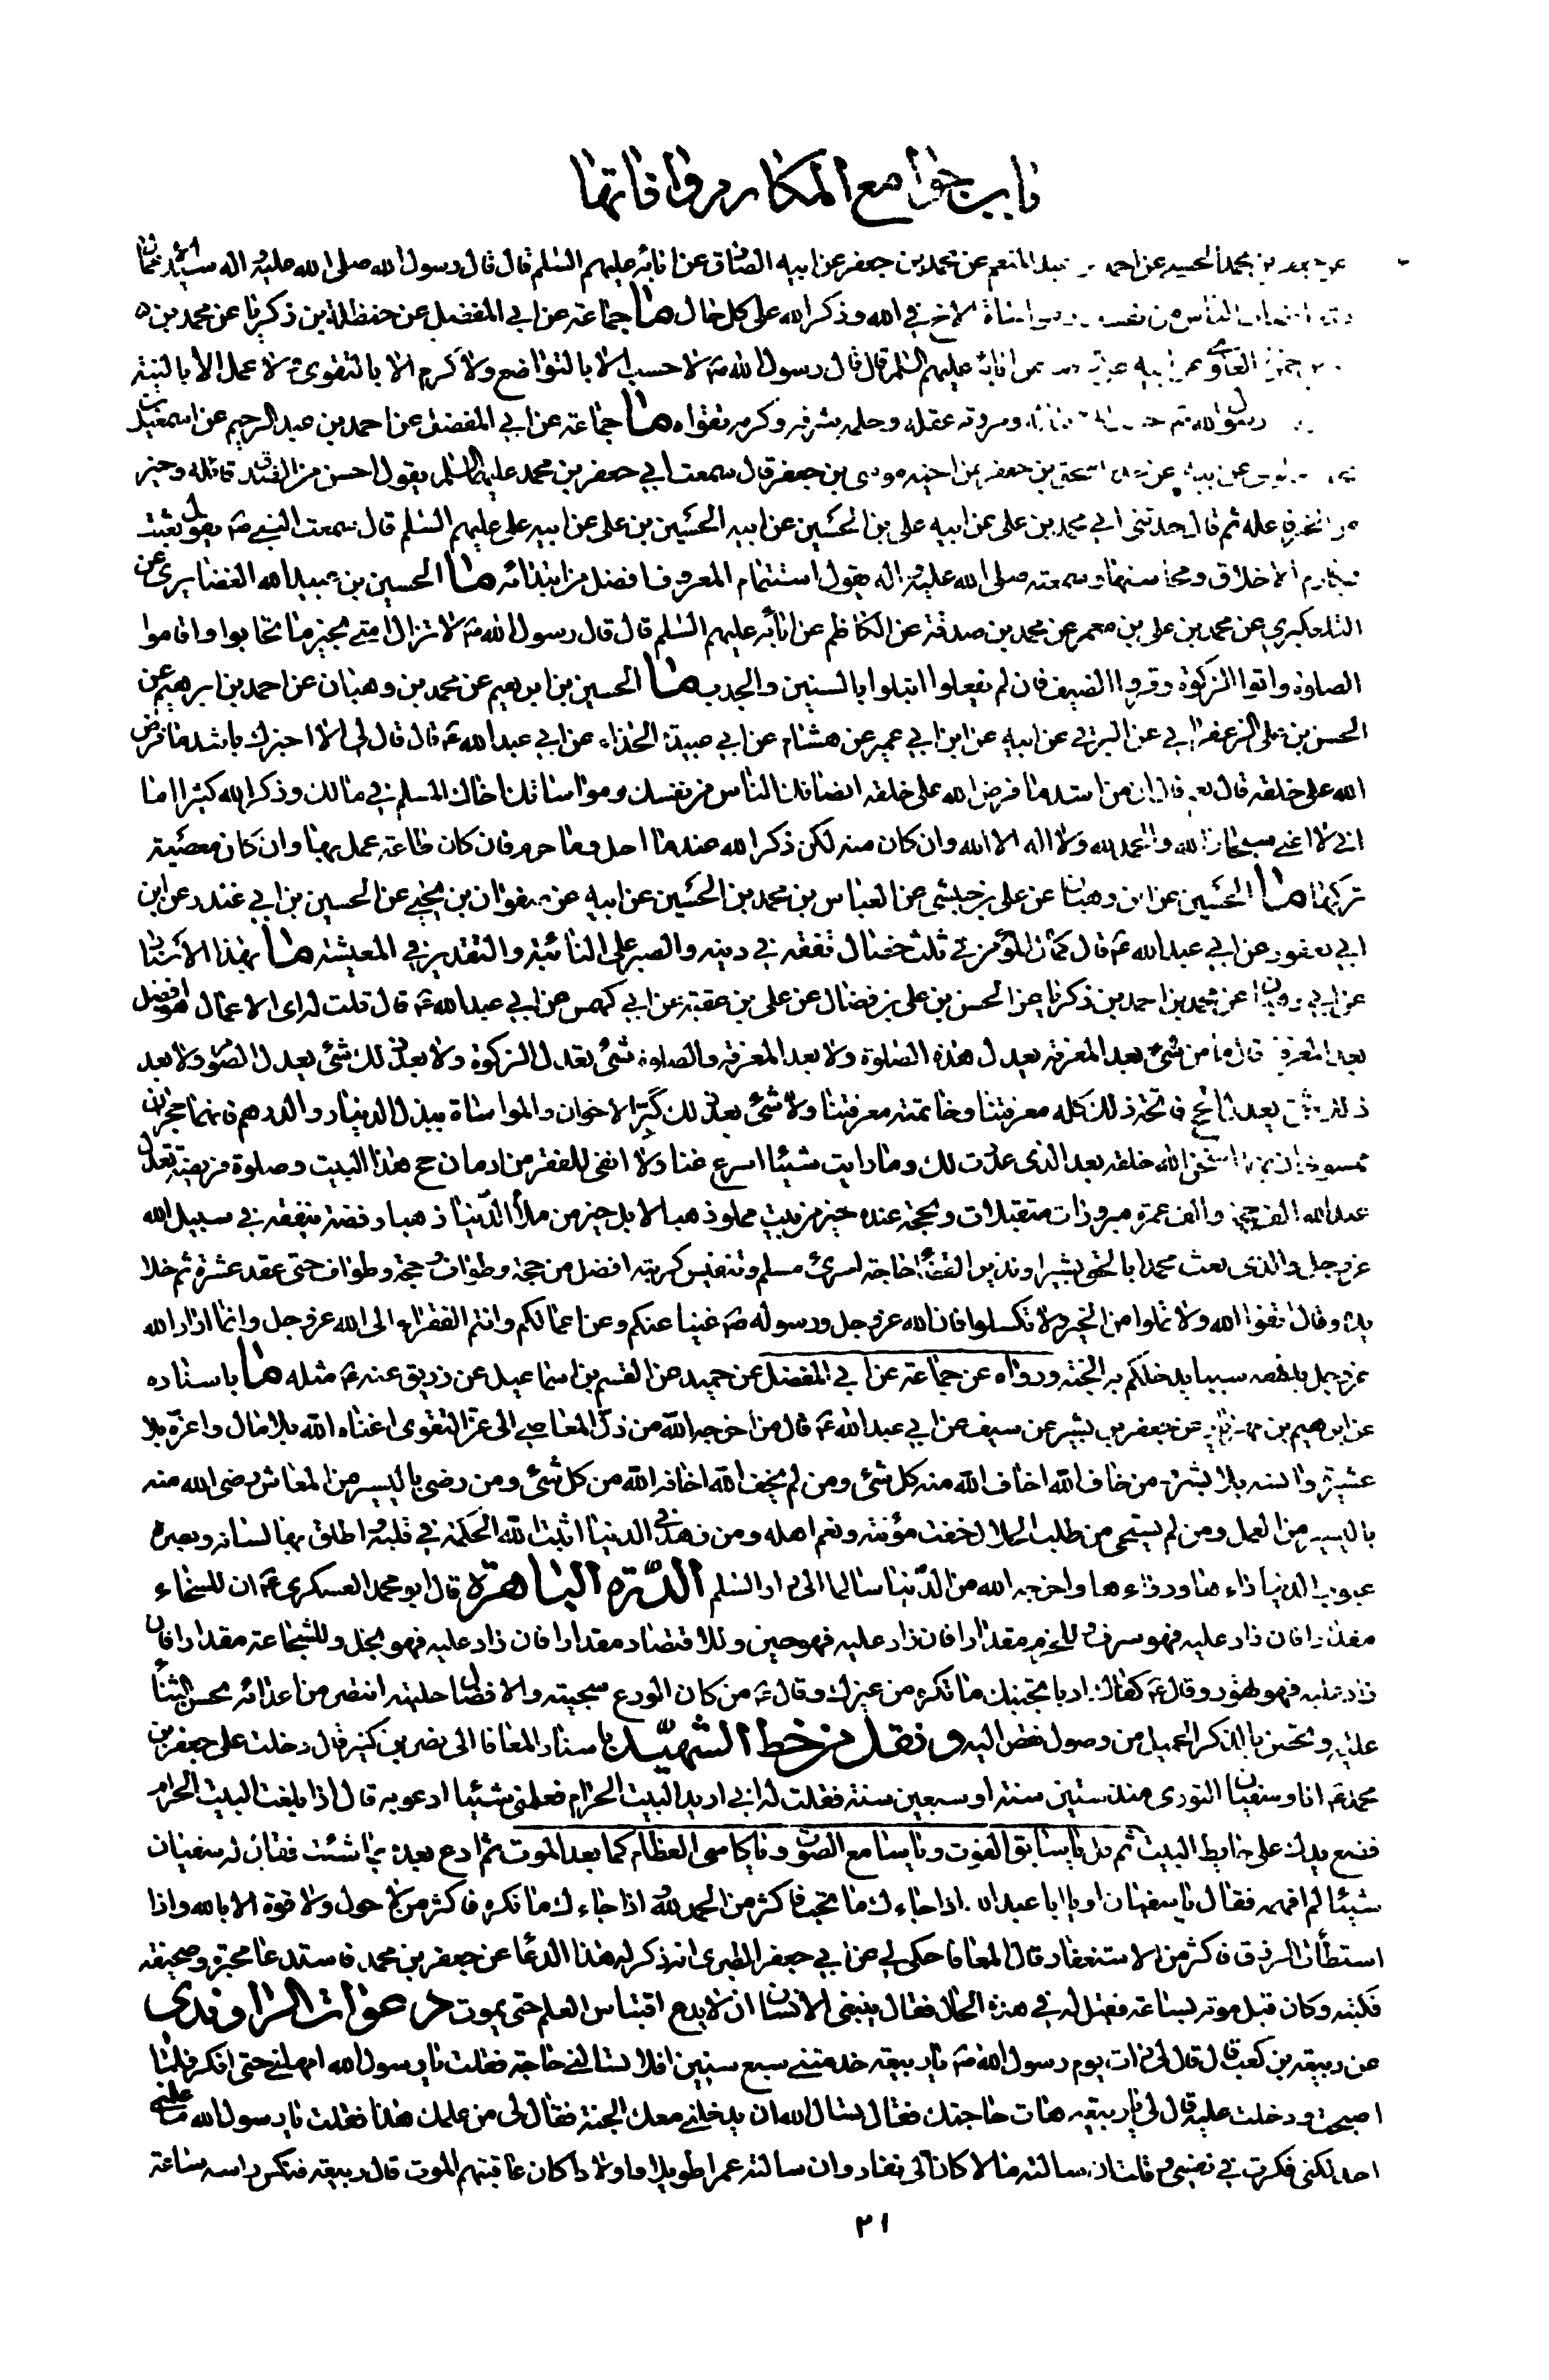 باب جوامع المكارم وافاتها
بن محمد الحسيني عن احمد عبد المنعم عن محمد بن جعفر عن ابيه الصادق عن ابائه عليهم السلم قال قال رسول الله صلى الله عليه واله سيد الاعمال
الناس من نفسك ومواساة الاخ في الله وذكر الله على كل حال ما جماعة عن ابي المفضل عن حنظلة بن زكريا عن محمد بن
العلوي عن ابيه عن ابائه عليهم السلم قال قال رسول الله ص لا حسب الا بالتواضع ولا كرم الا بالتقوى ولا عمل الا بالنية
رسول الله ص ومروته عقله وحلمه شرفه وكرمه تقواه ما جماعة عن ابي المفضل عن احمد بن عبد الرحيم عن اسمعيل بن
عن ابيه عن اسحق بن جعفر عن اخيه موسى بن جعفر قال سمعت ابي جعفر بن محمد عليهما السلم يقول احسن من الصدق قائله وخير
من الخير فاعله ثم قال حدثني ابي محمد بن علي عن ابيه علي بن الحسين عن ابيه الحسين بن علي عن ابيه علي عليهم السلم قال سمعت النبي ص يقول بعثت
بمكارم الاخلاق ومحاسنها وسمعته صلى الله عليه واله يقول استتمام المعروف افضل من ابتدائه ما الحسين بن عبيد الله الغضايري عن
التلعكبري عن محمد بن علي بن معمر عن محمد بن صدقة عن الكاظم عن ابائه عليهم السلم قال قال رسول الله ص لا تزال امتي بخير ما تحابوا واقاموا
الصلوة واتوا الزكوة وقروا الضيف فان لم يفعلوا ابتلوا بالسنين والجدب ما الحسين بن ابرهيم عن محمد بن وهبان عن احمد بن ابرهيم عن
الحسن بن علي الزعفراني عن البرقي عن ابيه عن ابن ابي عمير عن هشام عن ابي عبيدة الحذاء عن ابي عبد الله ع قال قال لي الا اخبرك باشد ما فرض
الله على خلقه قال نعم قال ان من اشد ما فرض الله على خلقه انصافك الناس من نفسك ومواساتك اخاك المسلم في مالك وذكر الله كثيرا اما
اني لا اعني سبحان الله والحمد لله ولا اله الا الله وان كان منه لكن ذكر الله عند ما احل وما حرم فان كان طاعة عمل بها وان كان معصية
تركها ما الحسين عن ابن وهبان عن علي بن حبشي عن العباس بن محمد بن الحسين عن ابيه عن صفوان بن يحيى عن الحسين بن ابي غندر عن ابن
ابي يعفور عن ابي عبد الله ع قال كمال المؤمن في ثلث خصال تفقه في دينه والصبر على النائبة والتقدير في المعيشة ما بهذا الاسناد
عن ابن وهبان عن محمد بن احمد بن زكريا عن الحسن بن علي بن فضال عن علي بن عقبة عن ابي كهمس عن ابي عبد الله ع قال قلت له اي الاعمال هو افضل
بعد المعرفة قال ما من شئ بعد المعرفة يعدل هذه الصلوة ولا بعد المعرفة والصلوة شئ يعدل الزكوة ولا بعد ذلك شئ يعدل الصوم ولا بعد
ذلك شئ يعدل الحج وفاتحة ذلك كله معرفتنا وخاتمته معرفتنا ولا شئ بعد ذلك كبر الاخوان والمواساة ببذل الدينار والدرهم فانهما حجران
ممسوخان بهما امتحن الله خلقه بعد الذي عددت لك وما رايت شيئا اسرع غنا ولا انفى للفقر من ادمان حج هذا البيت وصلوة فريضة تعدل
عند الله الف حجة والف عمرة مبرورات متقبلات ولحجة عنده خير من بيت مملو ذهبا لا بل خير من ملأ الدنيا ذهبا وفضة ينفقه في سبيل الله
عز وجل والذي بعث محمدا بالحق بشيرا ونذيرا لقضاء حاجة امرئ مسلم وتنفيس كربته افضل من حجة وطواف وحجة وطواف حتى عقد عشرة ثم خلا
يده وقال اتقوا الله ولا تملوا من الخير ولا تكسلوا فان الله عز وجل ورسوله ص غنيا عنكم وعن اعمالكم وانتم الفقراء الى الله عز وجل وانما اراد الله
عز وجل بلطفه سببا يدخلكم به الجنة ورواه عن جماعة عن ابي المفضل عن حميد عن القسم بن اسماعيل عن زريق عنه ع مثله ما باسناده
عن ابرهيم بن عن جعفر بن بشير عن سيف عن ابي عبد الله ع قال من اخرجه الله من ذل المعاصي الى عز التقوى اغناه الله بلا مال واعزه بلا
عشيرة وانسه بلا بشر من خاف الله اخاف الله منه كل شئ ومن لم يخف الله اخافه الله من كل شئ ومن رضي باليسير من المعاش رضي الله منه
باليسير من العمل ومن لم يستحي من طلب الحلال خفت مؤنته ونعم اهله ومن زهد في الدنيا اثبت الله الحكمة في قلبه واطلق بها لسانه وبصره
عيوب الدنيا داءها ودواءها واخرجه الله من الدنيا سالما الى دار السلم الدرة الباهرة قال ابو محمد العسكري ع ان للسخاء
مقدارا فان زاد عليه فهو سرف وللحزم مقدارا فان زاد عليه فهو جبن وللاقتصاد مقدارا فان زاد عليه فهو بخل وللشجاعة مقدارا فان
زاد عليه فهو تهور وقال ع كفاك ادبا تجنبك ما تكره من غيرك وقال ع من كان الورع سجيته والافضال حليته انتصر من اعدائه بحسن الثناء
عليه وتحصن بالذكر الجميل من وصول نقص اليه ونقل من خط الشهيد باسناد المعافا الى نصر بن كثير قال دخلت على جعفر بن
محمد ع انا وسفيان الثوري منذ ستين سنة او سبعين سنة فقلت له اني اريد البيت الحرام فعلمني شيئا ادعو به قال اذا بلغت البيت الحرام
فضع يدك على حايط البيت ثم قل يا سابق الفوت ويا سامع الصوت ويا كاسي العظام لحما بعد الموت ثم ادع بعده بما شئت فقال له سفيان
شيئا لم افهمه فقال يا سفيان او يا ابا عبد الله اذا جاءك ما تحب فاكثر من الحمد لله واذا جاءك ما تكره فاكثر من لا حول ولا قوة الا بالله واذا
استبطأت الرزق فاكثر من الاستغفار وقال المعافا حكي لي عن ابي جعفر الطبري انه ذكر له هذا الدعا عن جعفر بن محمد فاستدعا محبرة وصحيفة
فكتبه وكان قبل موته بساعة فقيل له في هذه الحال فقال ينبغي للانسان ان لا يدع اقتباس العلم حتى يموت دعوات الراوندي
عن ربيعة بن كعب قال قال لي ذات يوم رسول الله ص يا ربيعة خدمتني سبع سنين افلا تسالني حاجة فقلت يا رسول الله امهلني حتى افكر فلما
اصبحت ودخلت عليه قال لي يا ربيعة هات حاجتك فقال تسال الله ان يدخلني معك الجنة فقال لي من علمك هذا فقلت يا رسول الله ما علمني
احد لكني فكرت في نفسي وقلت ان سالته مالا كان الى نفاد وان سالته عمرا طويلا واولادا كان عاقبتهم الموت قال ربيعة فنكس راسه ساعة
٢١